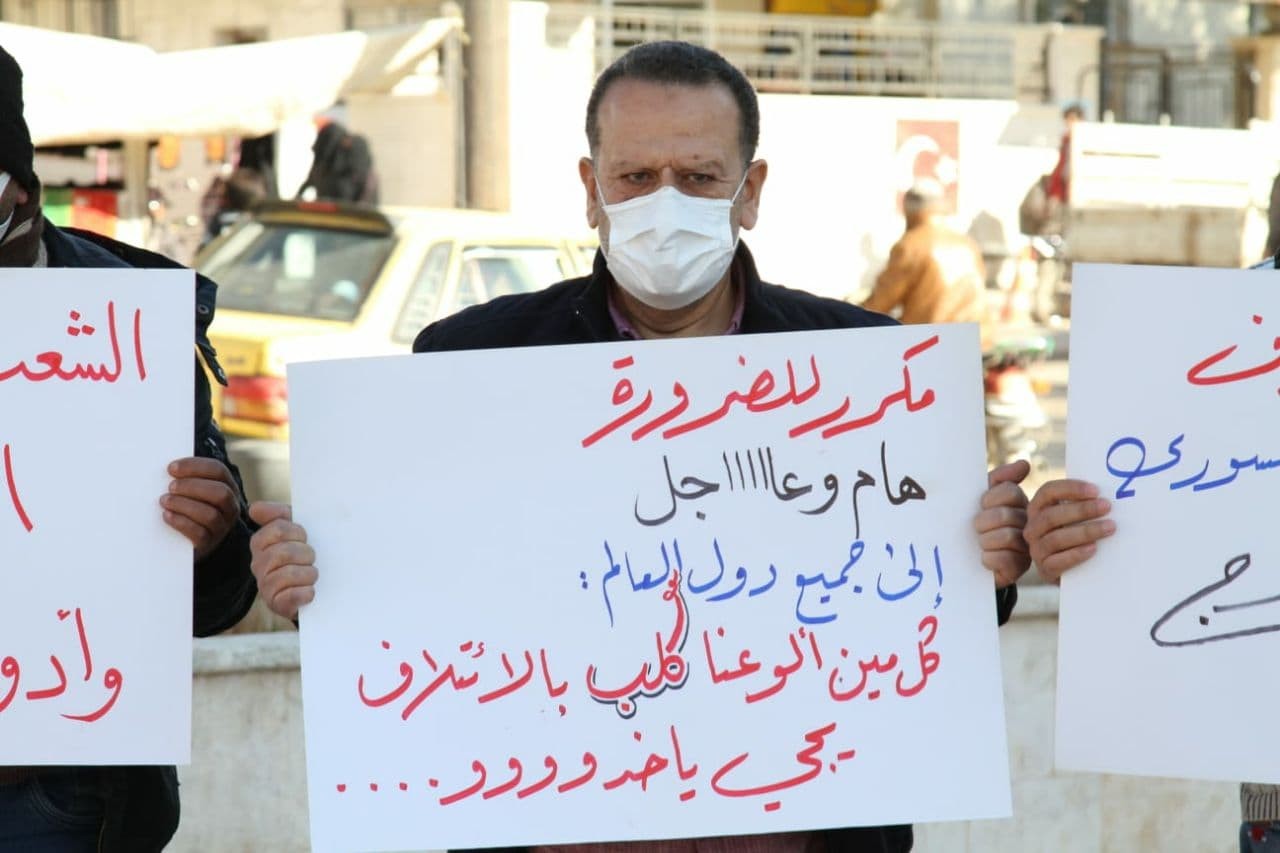 مكرر للضرورة
هام وعااااااجل
إلىٰ جميع دول العالم :
كل مين ألو عنا كلب بالائتلاف
يجي ياخدوووو....
الشعب
وأدو
سوري